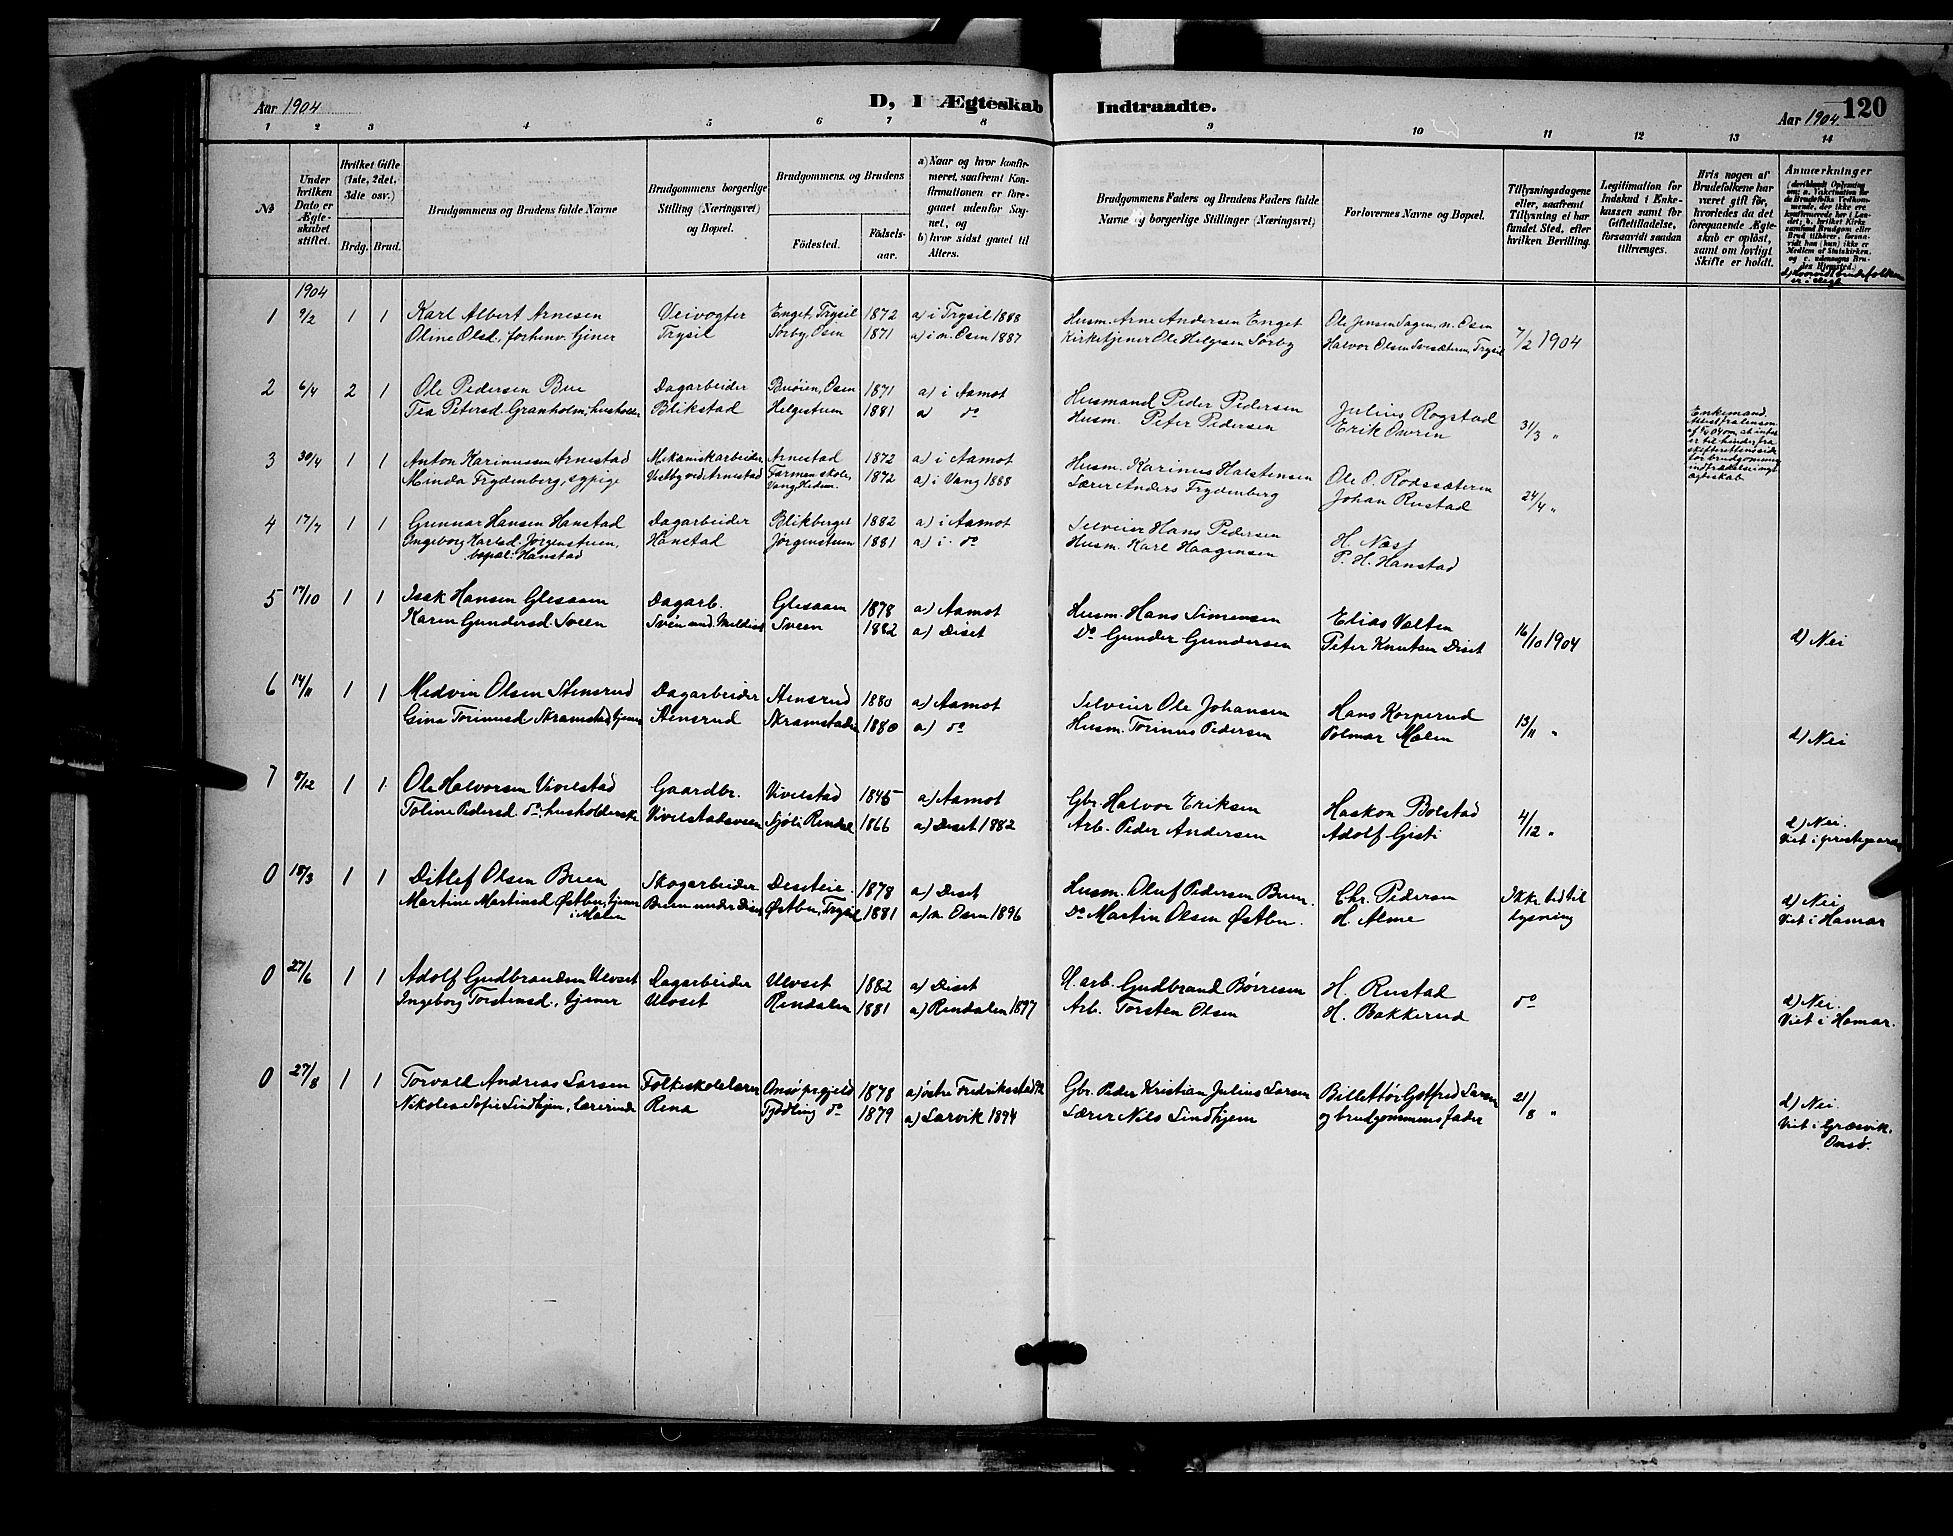 Aar 1904
D, I Ægteskab Indtraadte.
Aar 1904. 120
1 2 3 4 5 6 7 8 9 10 11 12 13 14
No
Under hvilken Dato er Ægteskabet stiftet.
Hvilket Gifte (1ste, 2det, 3die osv.)
Brdg. Brud.
Brudgommens og Brudens fulde Navne
Brudgommens borgerlige Stilling (Næringsvei) og Bopæl.
Brudgommens og Brudens
Födested. Födselsaar.
a) Naar og hvor konfirmeret, saafremt Konfirmationen er foregaaet udenfor Sognet, og
b) hvor sidst gaaet til Alters.
Brudgommens Faders og Brudens Faders fulde Navne og borgerlige Stillinger (Næringsvei)
Forlovernes Navne og Bopæl.
Tillysningsdagene eller, saafremt Tillysning ei har fundet Sted, efter hvilken Bevilling.
Legitimation for Indskud i Enkekassen samt for Giftetilladelse, forsaavidt saadan tiltrænges.
Hvis nogen af Brudefolkene har været gift för, hvorledes da det foregaaende Ægteskab er oplöst, samt om lovligt Skifte er holdt.
Anmærkninger
1904
1 9/2 1 1 Karl Albert Arnesen Veivogter Enget, Trysil 1872 a) i Trysil 1888 Husm. Arne Andersen Enget Ole Jensen Sagen, n. Osen
Oline Olsd., forhenv. tjener Trysil Sørby, Osen 1871 a) i n. Osen 1887 Kirketjener Ole Helgesen Sørby Halvor Olsen Trysil 7/2 1904
2 6/4 2 1 Ole Pedersen Dagarbeider Osen 1871 a) i Aamot Husmand Peder Pedersen Julius Rogstad
Tea Petersd. Granholm, Blikstad Helgestuen 1881 a) do Husm. Peter Pedersen Erik 31/3 "
Enkemand.
3 30/4 1 1 Anton Karinussen Arnestad Mekanikarbeider Arnestad 1872 a) i Aamot Husm. Karinus Halstensen Ole O. Rødssæteren
Minda Frydenberg, sypige Vestby ved Arnestad Vang, Hedem. 1872 a) i Vang 1888 Lærer Anders Frydenberg Johan Rustad 24/4 "
4 17/7 1 1 Gunnar Hansen Hanstad Dagarbeider Blikberget 1882 a) i Aamot Selveier Hans Pedersen H. Næss
Ingeborg Karlsd. Jørgenstuen, Hanstad Jørgenstuen 1881 a) i do Husm. Karl Haagensen P. H. Hanstad
bopæl: Hanstad
5 17/10 1 1 Isak Hansen Glesaaen Dagarb. Glesaaen 1878 a) Aamot Husm. Hans Simensen Elias Valten
Karen Gundersd. Sveen Sveen 1882 a) Diset Do Gunder Gundersen Peter Knutsen Diset 16/10 1904 d) Nei
6 14/11 1 1 Medvin Olsen Stensrud Dagarbeider Stensrud 1880 a) Aamot Selveier Ole Johansen Hans Korperud
Gina Torinusd. Skramstad, tjener Stensrud 1880 a) do Husm. Torinus Pedersen Polmar Mælen 13/11 " d) Nei
7 8/12 1 1 Ole Halvorsen Vivelstad Gaardbr. Vivelstad 1845 a) Aamot Gbr. Halvor Eriksen Haakon Bolstad
Toline Pedersd. do, husholderske Vivelstadsveen Sjøli Rendal 1866 a) Diset 1882 Arb. Peder Andersen Adolf Gisti 4/12 " d) Nei.
Viet i prestegaarden
0 18/3 1 1 Ditlef Olsen Bruen Skogarbeider Diseteie 1878 a) Diset Husm. Oluf Pedersen Bruen. Chr. Pedersen Ikke tid til d) Nei
Martine Martinsd. Østby, tjener Bruen under Diset Østby, Trysil 1881 a) n. Osen 1896 Do Martin Olsen Østby. H. Alme lysning Viet i Hamar
0 27/6 1 1 Adolf Gudbrandsen Ulvset Dagarbeider Ulvset 1882 a) Diset Gudbrand Børresen H. Rustad
Ingeborg Torstensd., tjener Ulvset Rendalen 1881 a) Rendalen 1897 Arb. Torsten Olsen H. Bakkerud do d) Nei.
Viet i Hamar.
0 27/8 1 1 Torvald Andreas Larsen Folkeskolelærer Onsø prgjeld 1878 a) østre Fredriksstad Gbr. Peder Kristian Julius Larsen Billettør Gotfred Larsen 21/8 "
Nikolea Sofie Lindhjem, lærerinde Rena Tjødling do 1879 a) Larvik 1894 Lærer Nils Lindhjem og brudgommens fader d) Nei.
Viet i Græsvik,
Onsø.